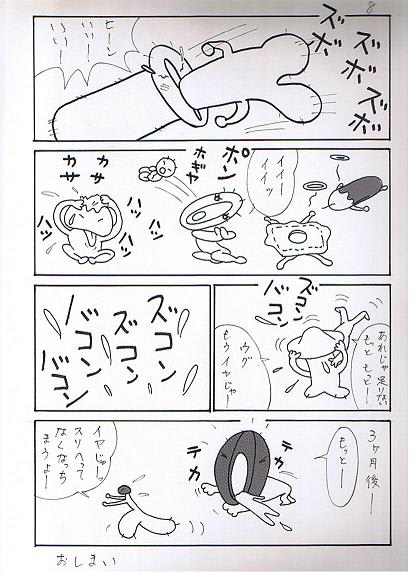 8
ズボ
ズボ
ズボ
ヒーン
いいー
いいー!
イイー
イイッ
ポン
ホギャ
カサ
カサ
ハッ
ハッ
ハッ
ハッ
ズコン
バコン
あれじゃ足りない
もっともっとー!
ウグ
もうイヤじゃー
ズコン
ズコン
バコン
バコン
3ヶ月後ー
もっとー
テカ
テカ
イヤじゃーっ
スリへって
なくなっち
まうよー
おしまい